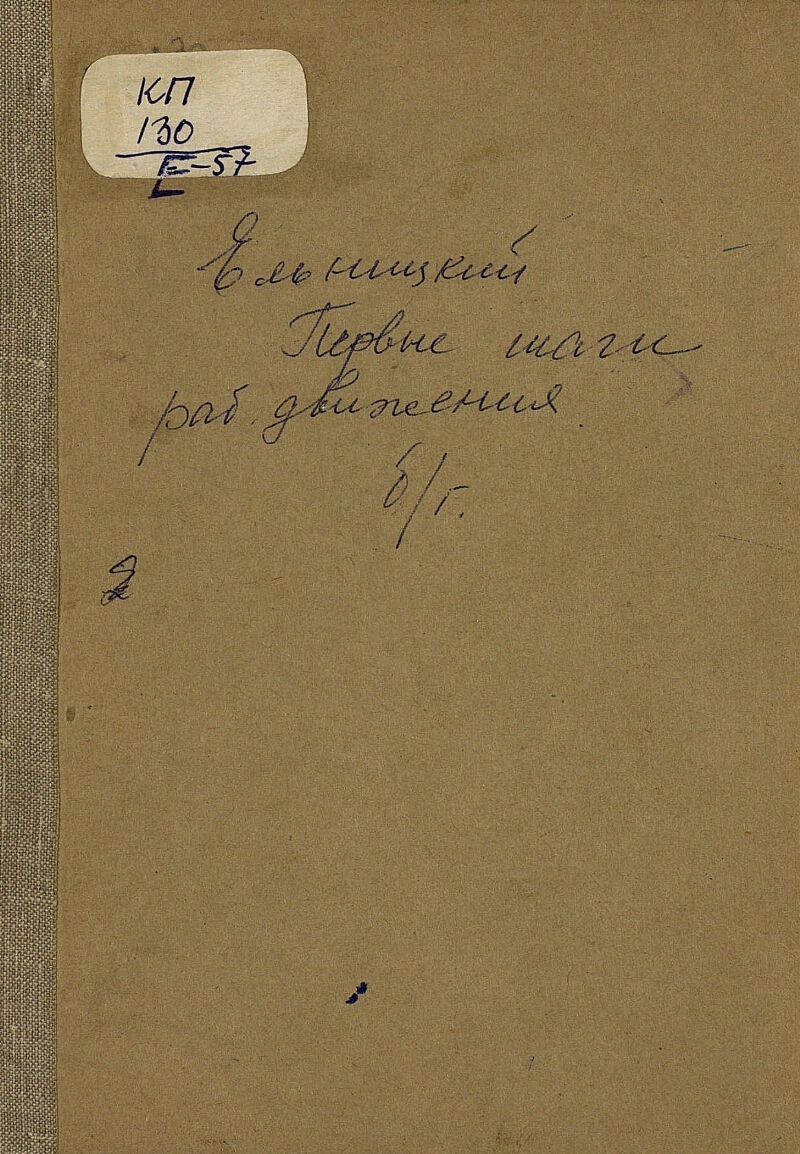 КП
130
Е-57
Ельницкий
Первые шаги
раб. движения
б/г.